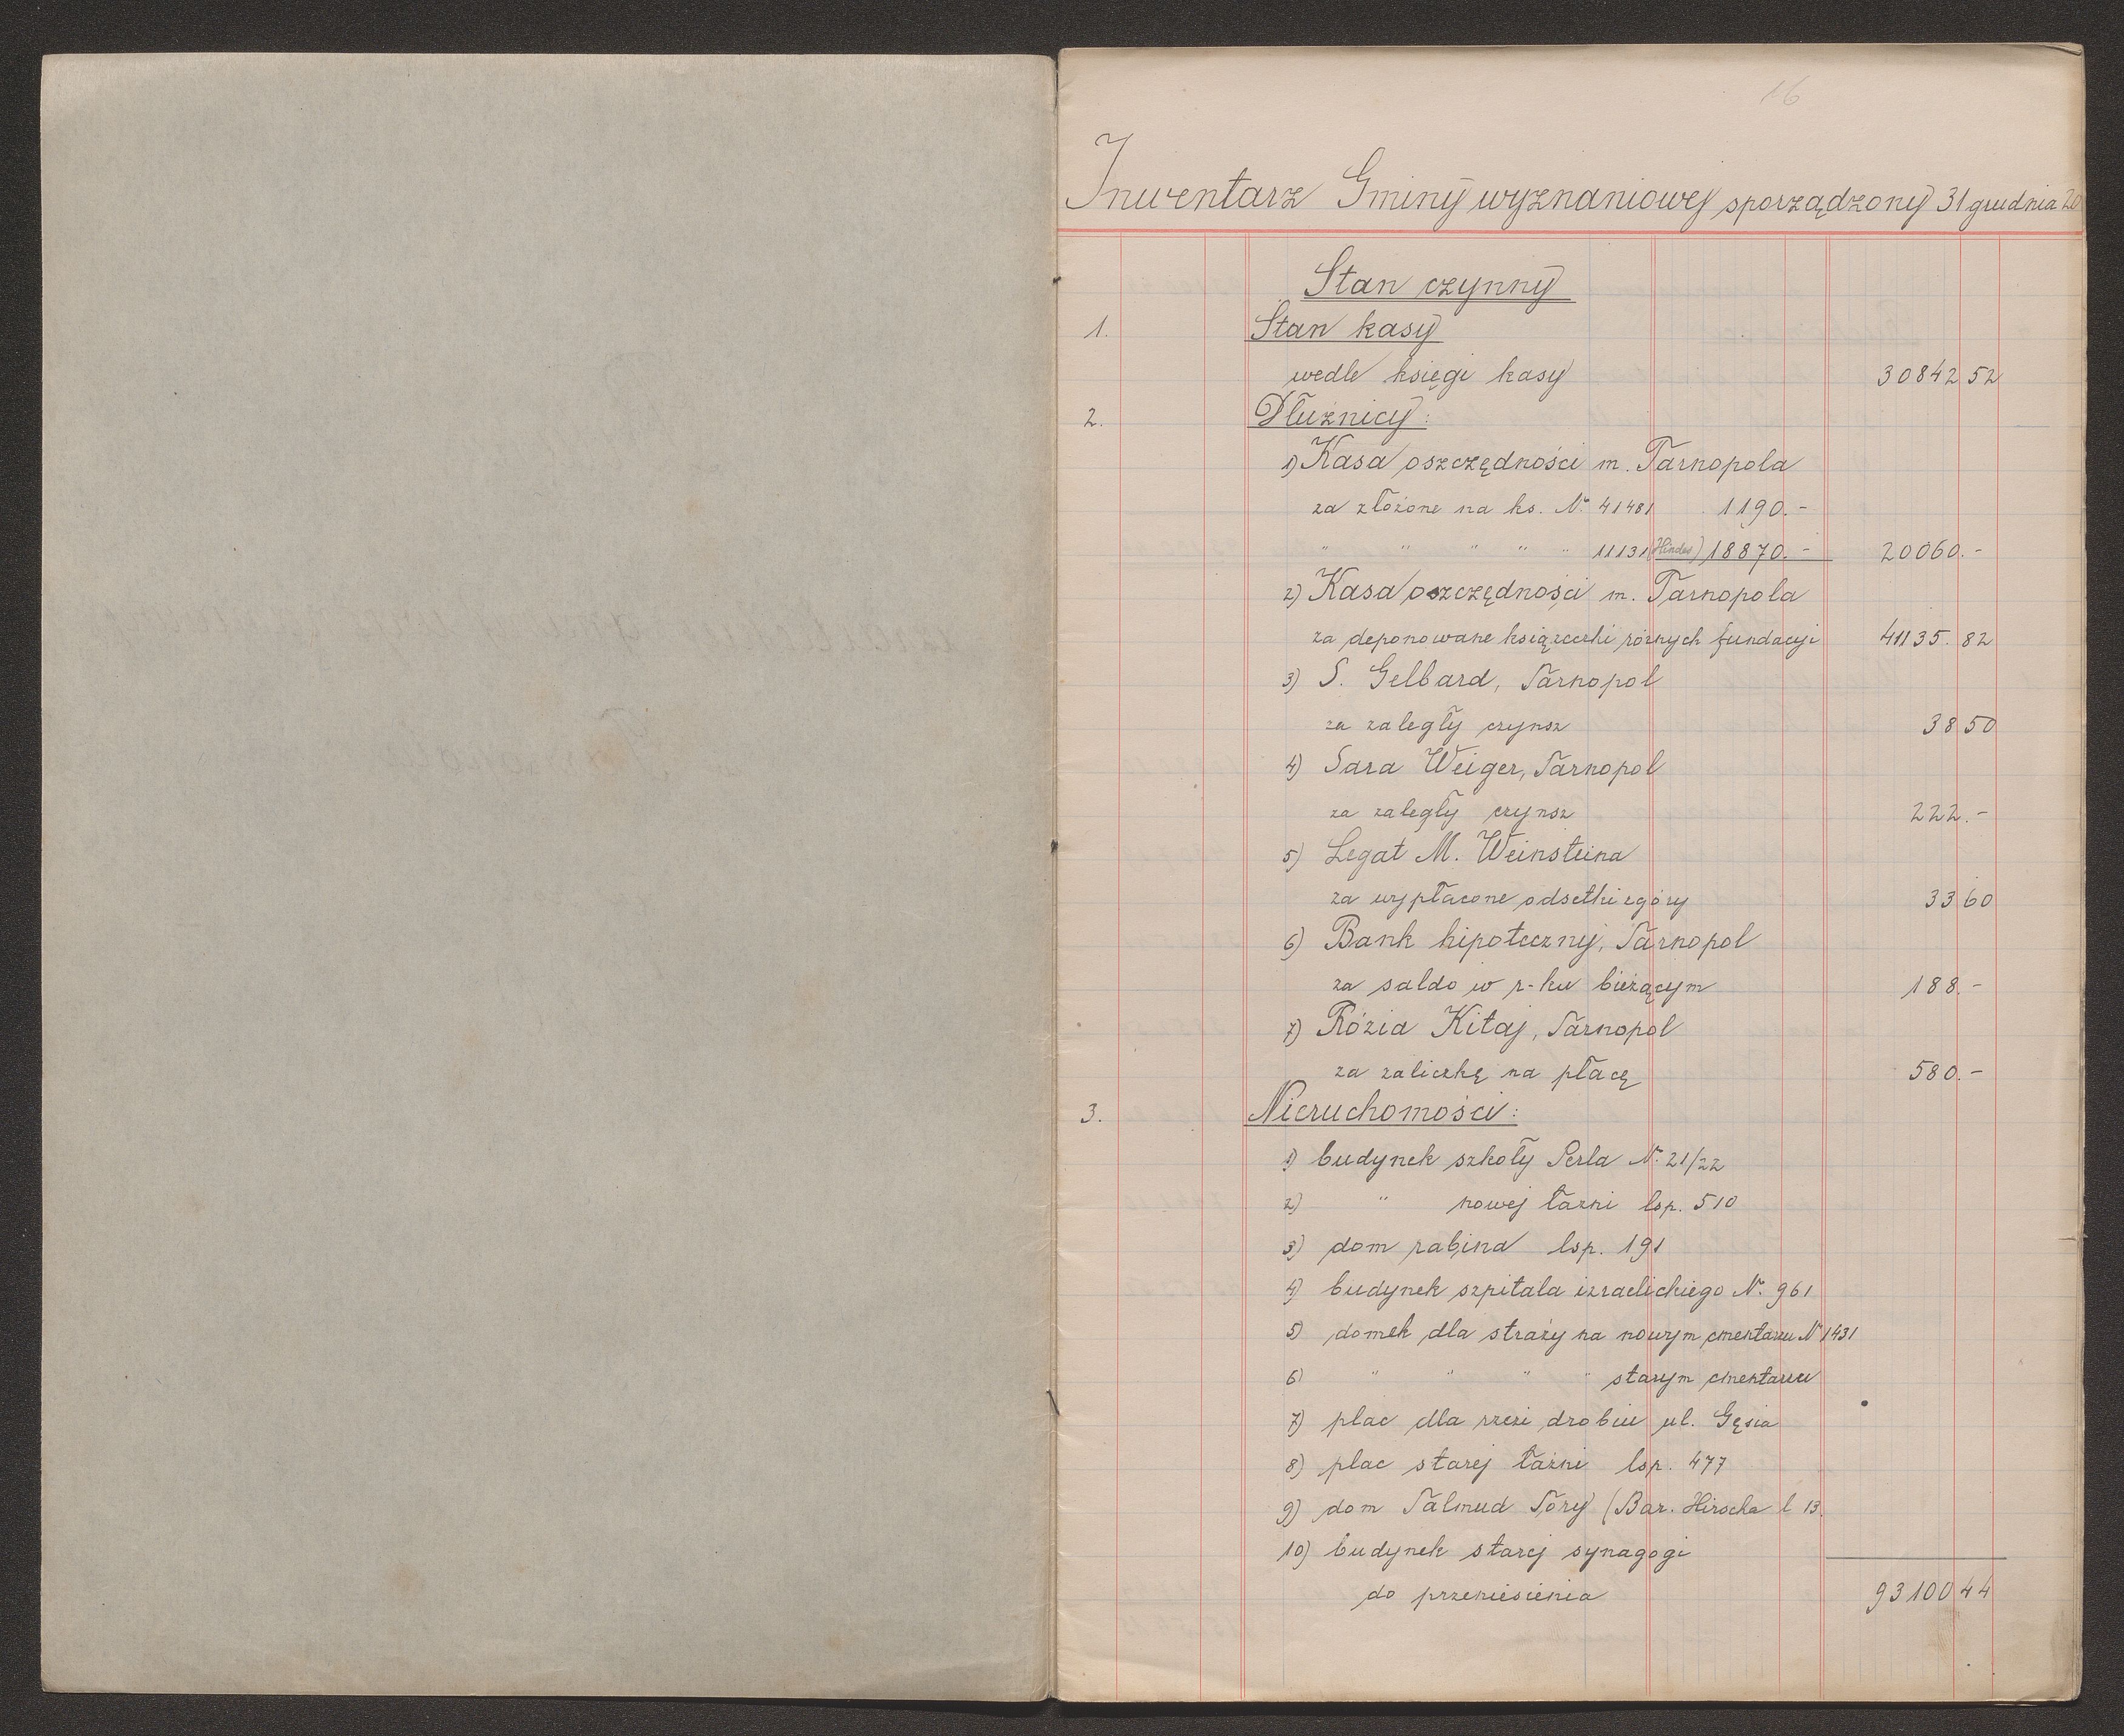 16
Inwentarz Gminy wyznaniowej sporządzony 31 grudnia 20
Stan czynny
1. Stan kasy
wedle księgi kasy 30842 52
2. Dłużnicy:
1) Kasa oszczędności m. Tarnopola
za złożone na ks. № 41481 1190.-
" " " " " 11131 (Hindes) 18870.- 20060.-
2) Kasa oszczędności m. Tarnopola
za deponowane książeczki różnych fundacyi 41135. 82
3) S. Gelbard, Tarnopol
za zaległy czynsz 38 50
4) Sara Weiger, Tarnopol
za zaległy czynsz 222.-
5) Legat M. Weinsteina
za wypłacone odsetki zgóry 33 60
6) Bank hipoteczny, Tarnopol
za saldo w r-ku bieżącym 188.-
7) Rózia Kitaj, Tarnopol
za zaliczkę na płacę 580.-
3. Nieruchomości:
1) budynek szkoły Perla №. 21/22
2) " nowej łaźni lsp. 510
3) dom rabina lsp. 191
4) budynek szpitala izraelickiego №. 961
5) domek dla straży na nowym cmentarzu № 1431
6) " " " " starym cmentarzu
7) plac dla rzezi drobiu ul. Gęsia
8) plac starej łaźni lsp. 477
9) dom Talmud Tory (Bar. Hirscha l 13.
10) budynek starej synagogi
do przeniesienia 93100 44